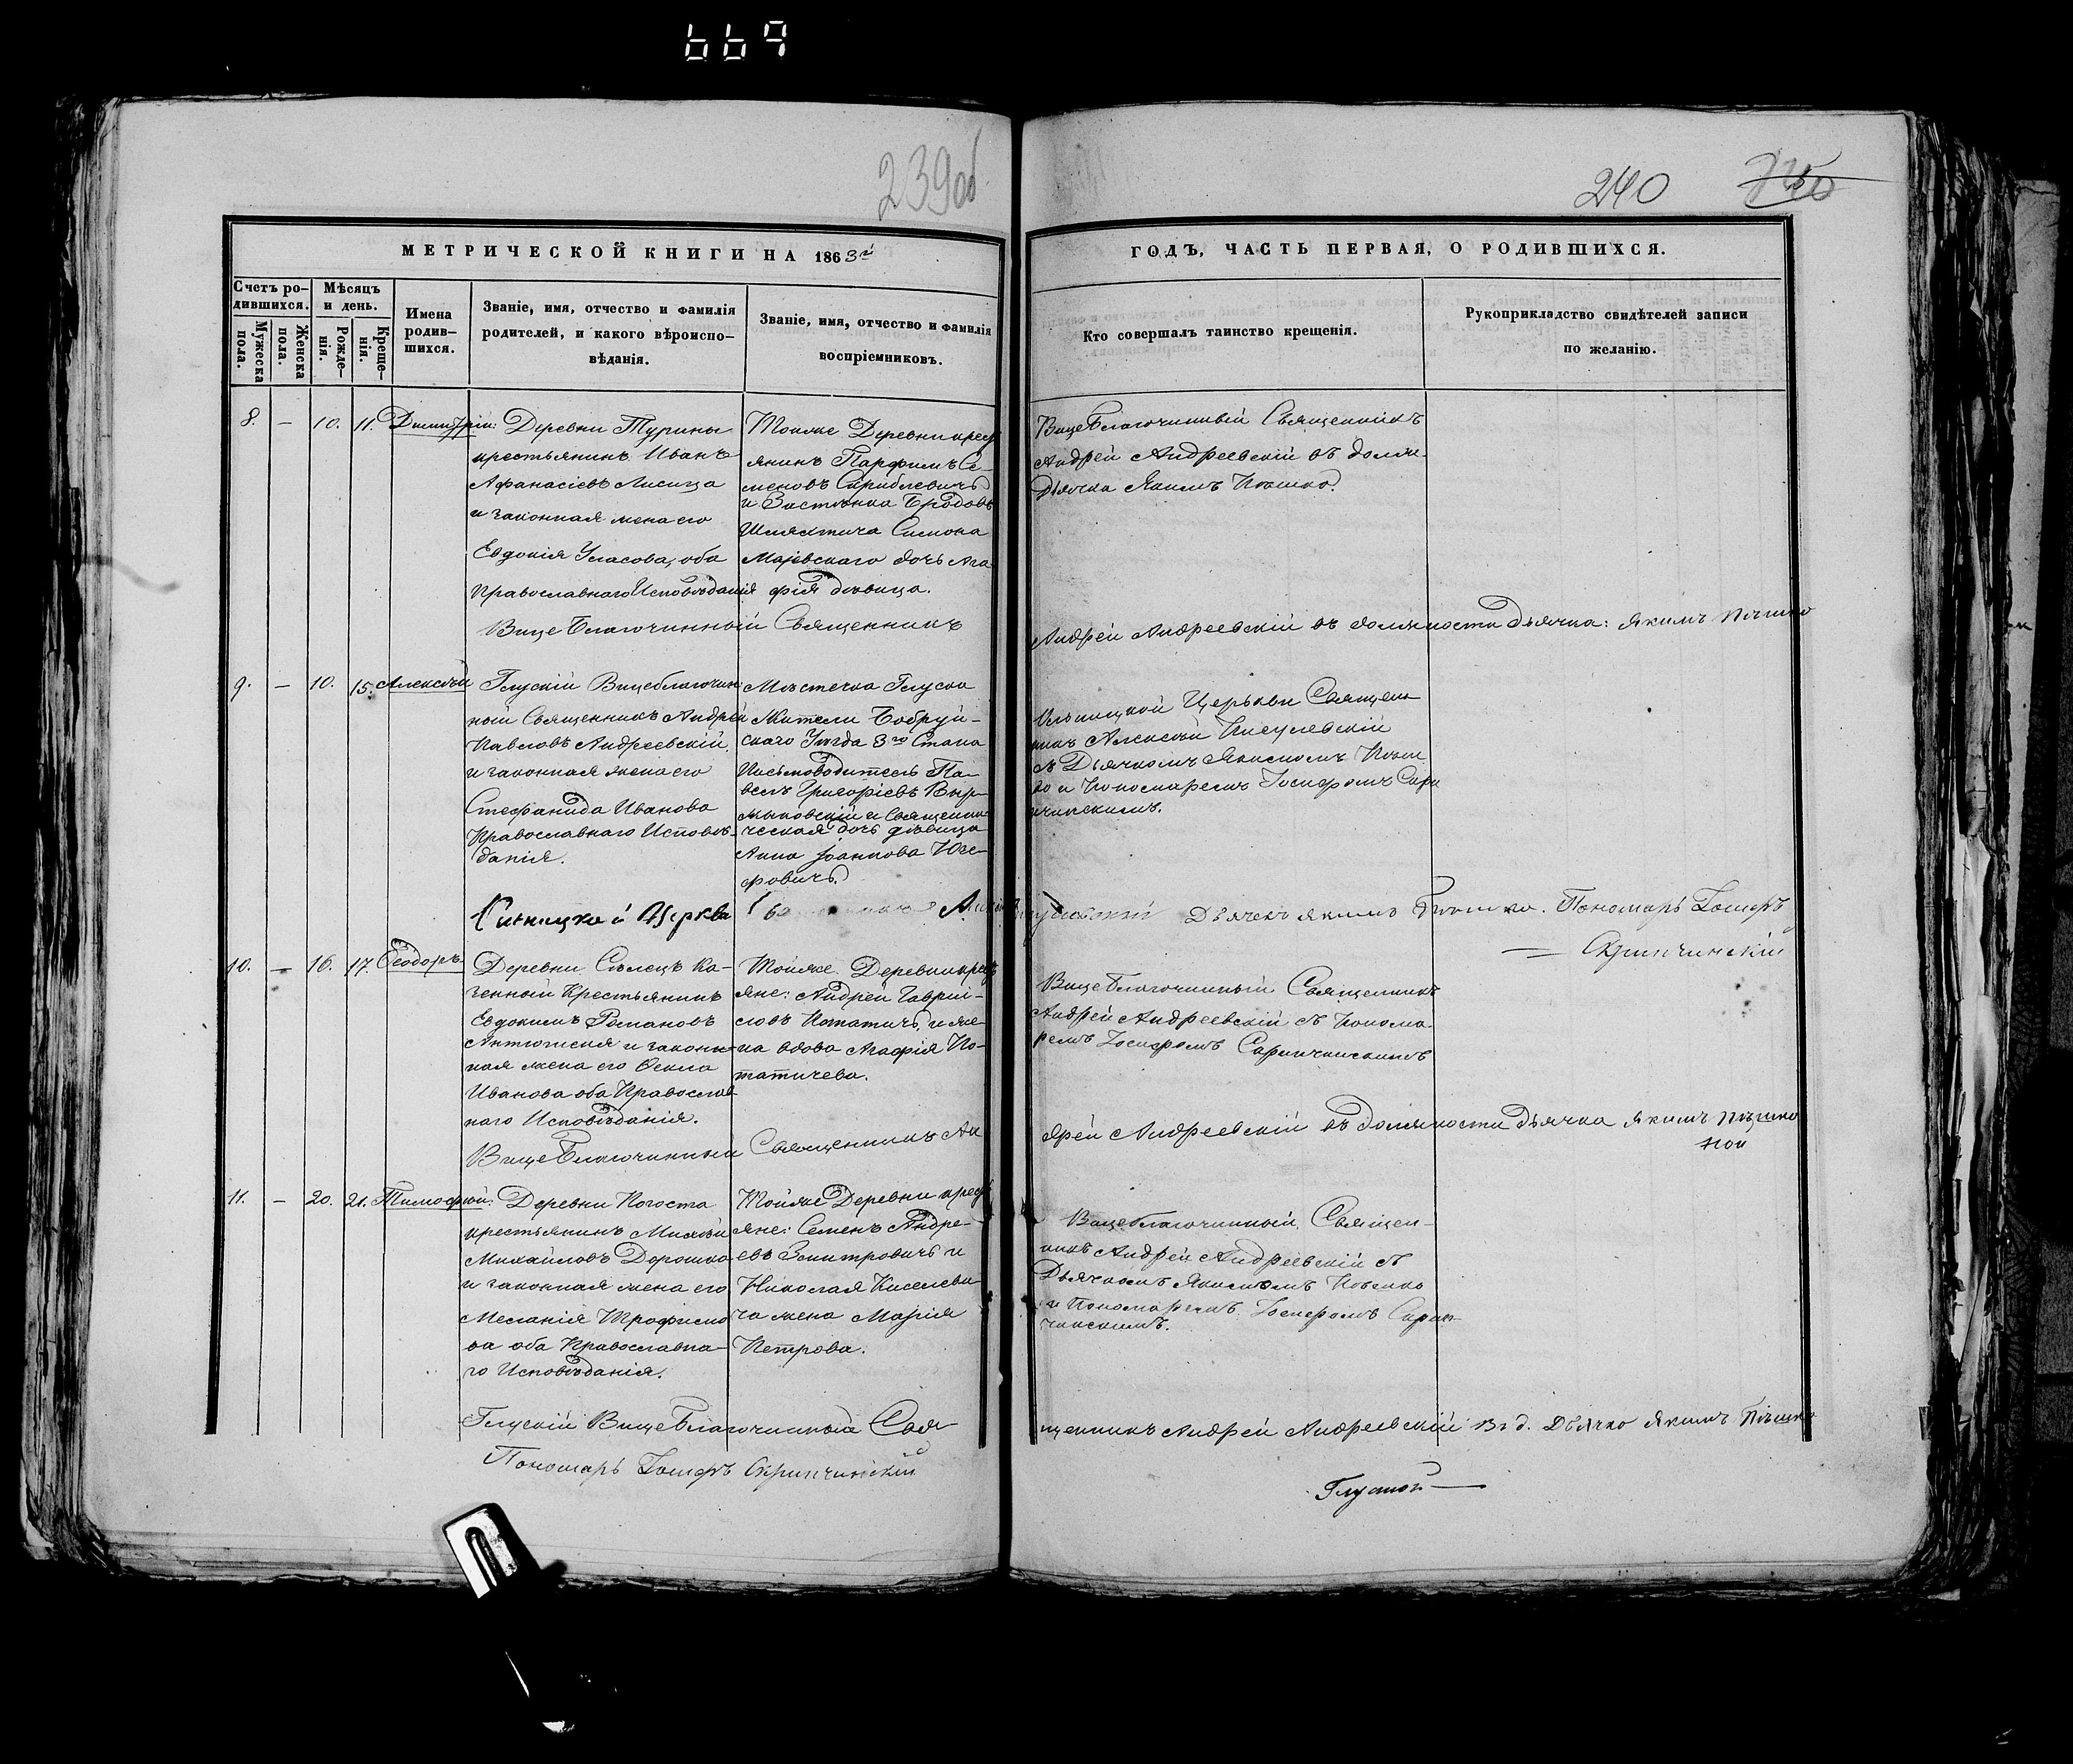 669
239об
240
МЕТРИЧЕСКОЙ КНИГИ НА 1863й
Счетъ ро-
дившихся.
Мужеска
пола.
Женска
пола.
Мѣсяцъ
и день.
Рожде-
нія.
Креще-
нія.
Имена
родив-
шихся.
Званіе, имя, отчество и фамилія
родителей, и какого вѣроиспо-
вѣданія.
Званіе, имя, отчество и фамилія
воспріемниковъ.
ГОДЪ, ЧАСТЬ ПЕРВАЯ, О РОДИВШИХСЯ.
Кто совершалъ таинство крещенія.
Рукоприкладство свидѣтелей записи
по желанію.
8. — 10. 11. Димитрій:
Деревни Турины
крестьянинъ Иванъ
Афанасіевъ Лисица
и законная жена его
Евдокія Уласова, оба
Православнаго Исповѣданія
Тойже Деревни крест
янинъ Парфимъ Се-
меновъ
и Застѣнка Бродовъ
Шляхтича Симона
Маіевскаго дочь Ага
фія дѣвица.
ВицеБлагочинный Священникъ
Андрей Андреевскій въ долж
Дьячка Якимъ Пѣшко.
Вице Благочинный Священникъ
Андрей Андреевскій въ должности Дьячка: Якимъ Пѣшко
9. — 10. 15. Алексѣй
Глускій Вицеблагочин:
ный Священникъ Андрей
Павловъ Андреевскій
и законная жена его
Стефанида Иванова
Православнаго Исповѣ-
данія.
Мѣстечка Глуска
Жители Бобруй-
скаго Уѣзда 3го Стана
Письмоводитель Па-
велъ Григоріевъ
и Священни-
ческая дочь дѣвица
Анна Іоаннова Юзе-
фовичъ.
Церкви Священ
никъ Алексѣй
съ Дьячкомъ Якимомъ Пѣш
ко и Пономаремъ Іосифомъ Скри
пчинскимъ.
Церкви
Дьячекъ Якимъ Пѣшко. Пономарь Іосифъ
— Скрипчинскій
10. — 16. 17. Ѳеодоръ
Деревни Сѣлецъ Ка-
зенный Крестьянинъ
Евдокимъ Романовъ
и закон-
ная жена его Ѳекла
Иванова оба Православ
наго Исповѣданія.
Тойже Деревни крест
яне: Андрей Гаврій-
ловъ Потатичъ, и же-
на вдова Агафія По-
татичева.
ВицеБлагочинный Священникъ
Андрей Андреевскій съ Понома
ремъ Іосифомъ Скрипчинскимъ
ВицеБлагочинный Священникъ Ан
дрей Андреевскій въ должности Дьячка Якимъ Пѣшко
11. — 20. 21. Тимофей:
Деревни Погоста
крестьянинъ
Михайловъ Дорошко
и законная жена его
Меланія Трофимо
ва оба Православна-
го Исповѣданія.
Тойже Деревни крест
яне: Семенъ Андре-
евъ Змитровичъ и
Николая Киселеви
ча жена Марія
Петрова.
Вицеблагочинный Священ-
никъ Андрей Андреевскій съ
Дьячкомъ Якимомъ Пѣшко
и Пономаремъ Іосифомъ Скрип-
чинскимъ.
Глускій ВицеБлагочинный Свя
щенникъ Андрей Андреевскій В. д. Дьячко Якимъ Пѣшко
Пономарь Іосифъ Скрипчинскій